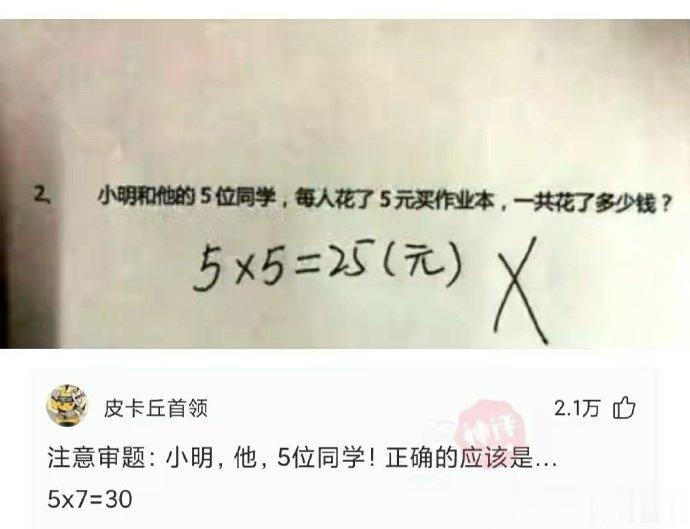 2、 小明和他的5位同学，每人花了5元买作业本，一共花了多少钱？
5×5=25(元) X
皮卡丘首领 2.1万
注意审题：小明，他，5位同学！正确的应该是...
5x7=30